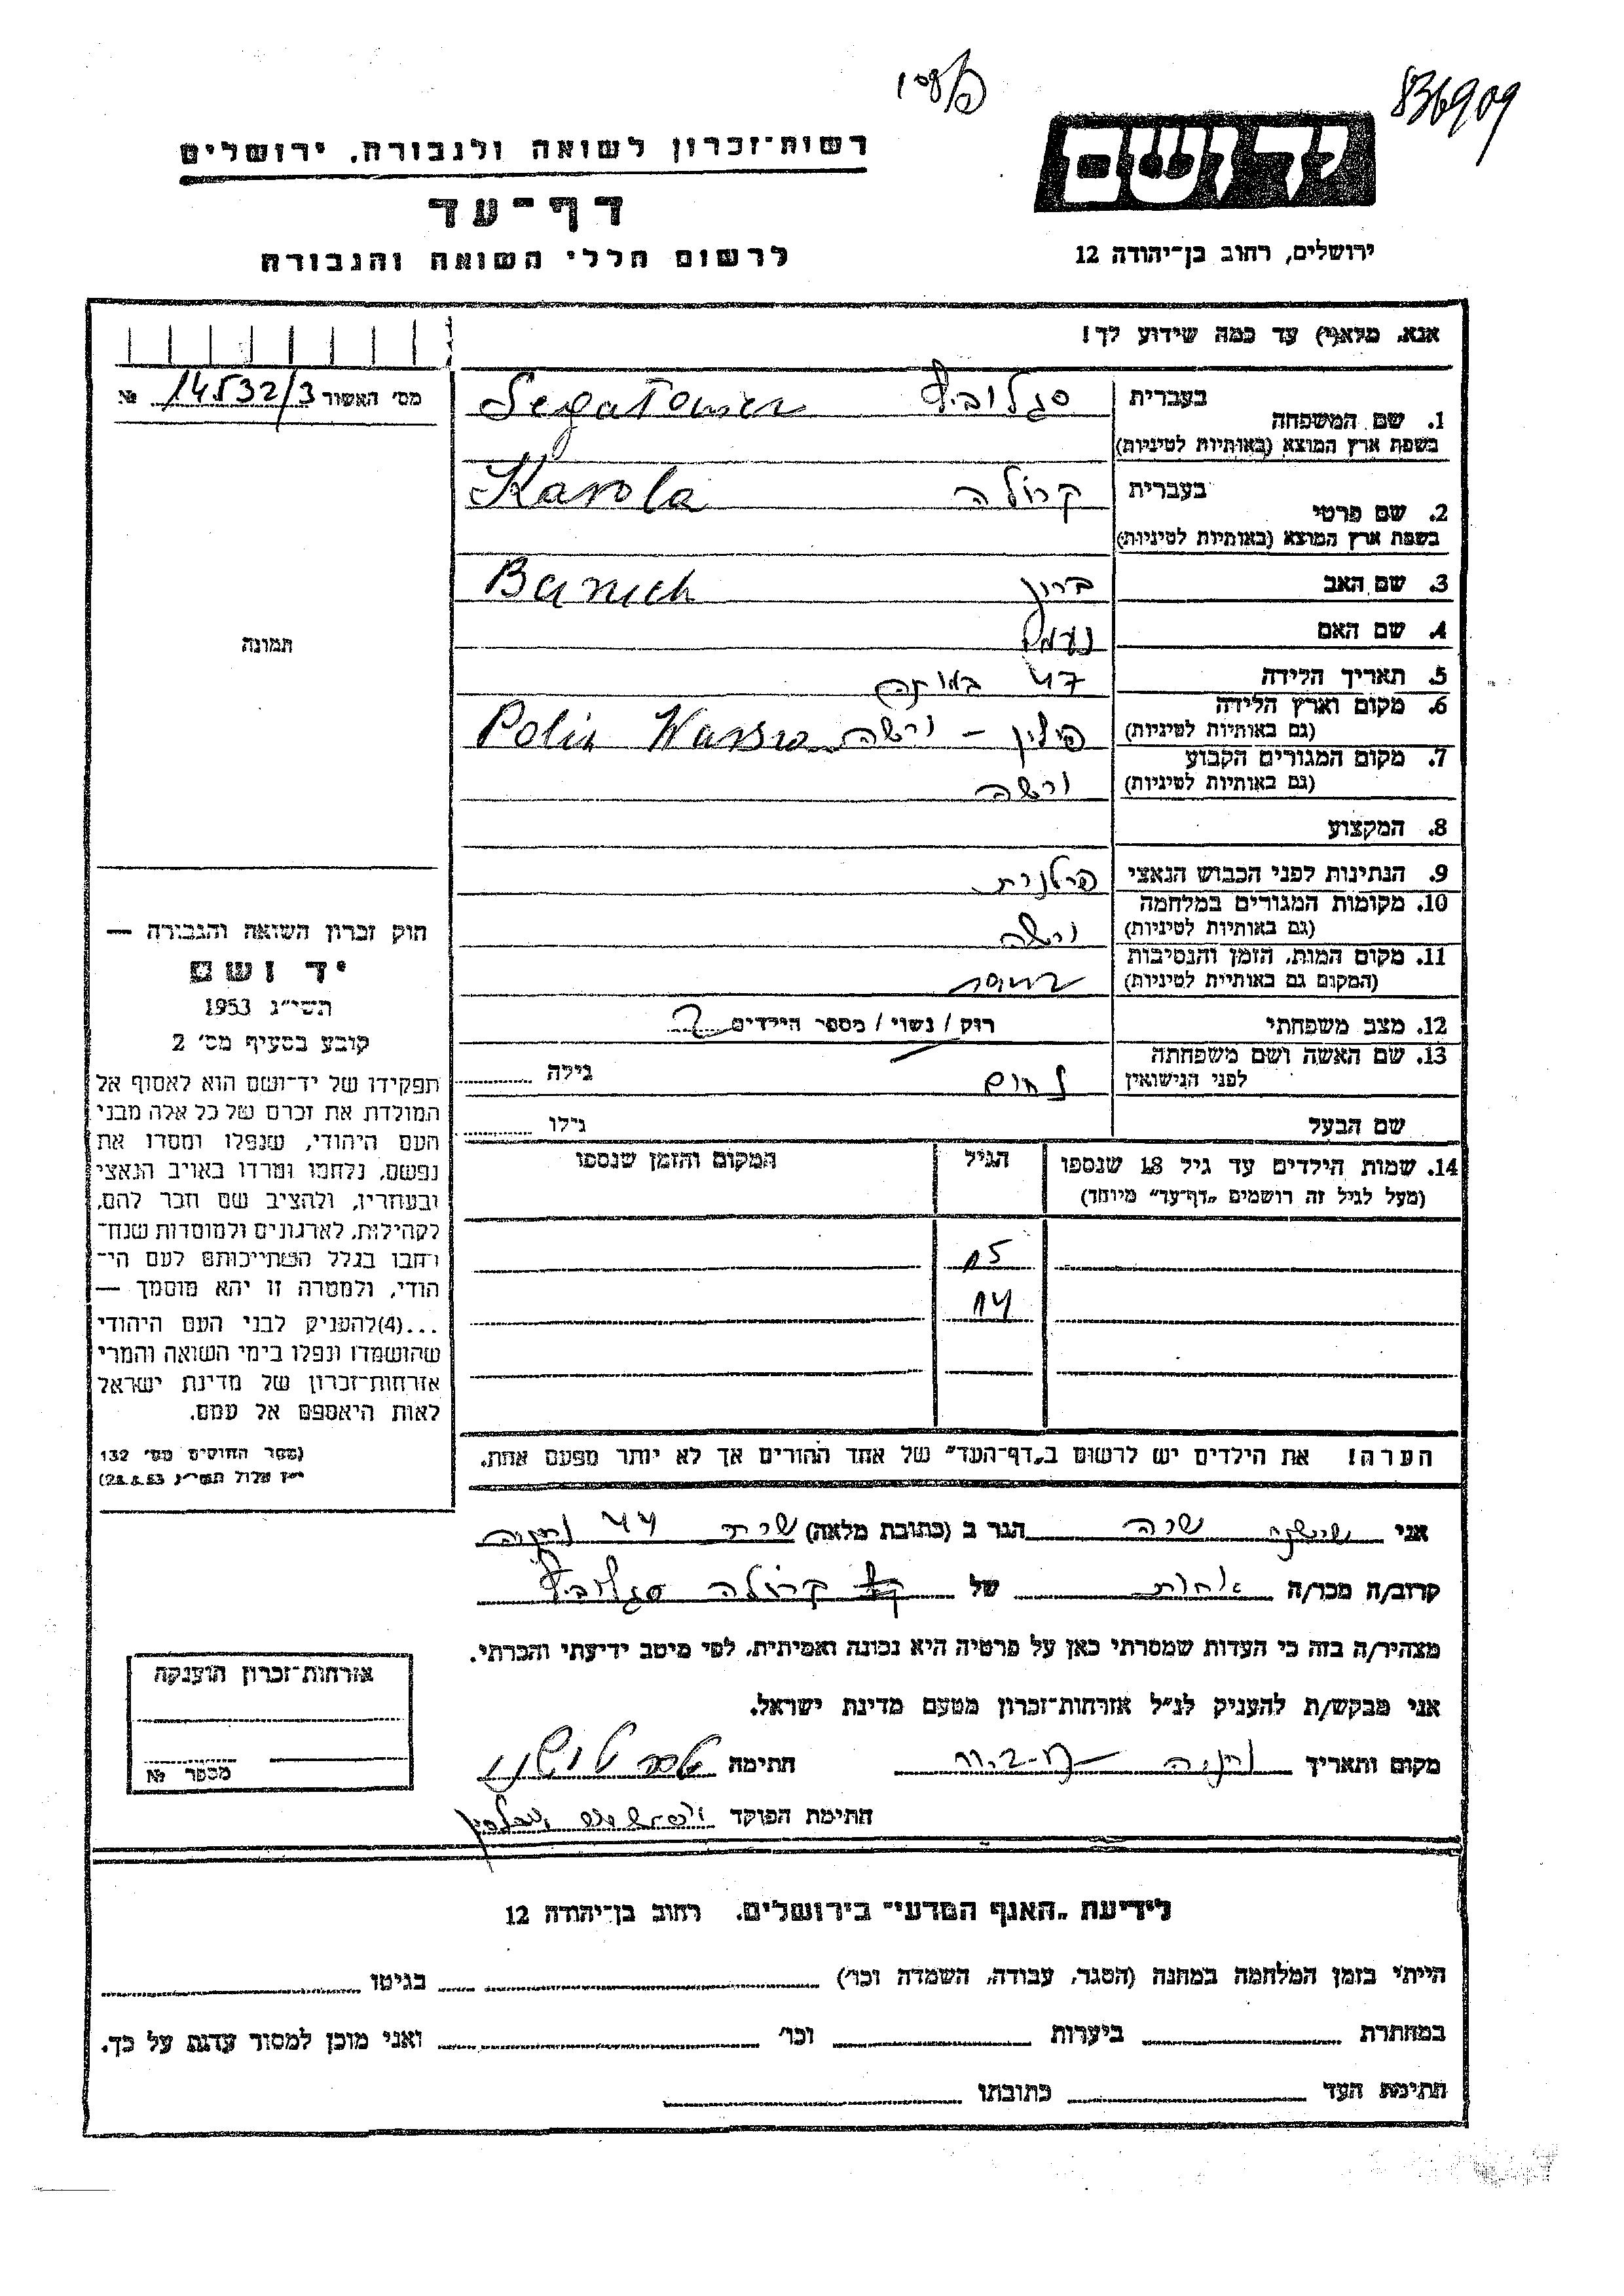 836909
רשות־זכרון לשואה ולגבורה, ירושלים
יד ושם
דף־עד
ירושלים, רחוב בן־יהודה 12
לרשום חללי השואה והגבורה
אנא, מלא(י) עד כמה שידוע לך!
מס׳ האשור 14532/3 №
1. שם המשפחה
בעברית סגלוביץ
בשפת ארץ המוצא (באותיות לטיניות)
2. שם פרטי
בעברית קרולה Karola
בשפת ארץ המוצא (באותיות לטיניות)
3. שם האב ברוך Baruch
4. שם האם נעמי
תמונה
5. תאריך הלידה 47
6. מקום וארץ הלידה
(גם באותיות לטיניות) פולין – ורשה Polin
7. מקום המגורים הקבוע
(גם באותיות לטיניות) ורשה
8. המקצוע
9. הנתינות לפני הכבוש הנאצי פולנית
10. מקומות המגורים במלחמה
(גם באותיות לטיניות) ורשה
11. מקום המות, הזמן והנסיבות
(המקום גם באותיות לטיניות)
12. מצב משפחתי רווק / נשוי / מספר הילדים 2
13. שם האשה ושם משפחתה
לפני הנישואין נחום גילה
שם הבעל גילו
14. שמות הילדים עד גיל 18 שנספו
(מעל לגיל זה רושמים „דף־עד״ מיוחד)
הגיל
המקום והזמן שנספו
15
14
הערה! את הילדים יש לרשום ב„דף־העד״ של אחד ההורים אך לא יותר מפעם אחת.
חוק זכרון השואה והגבורה —
יד ושם
תשי״ג 1953
קובע בסעיף מס׳ 2
תפקידו של יד־ושם הוא לאסוף אל
המולדת את זכרם של כל אלה מבני
העם היהודי, שנפלו ומסרו את
נפשם, נלחמו ומרדו באויב הנאצי
ובעוזריו, ולהציב שם וזכר להם,
לקהילות, לארגונים ולמוסדות שנח־
רבו בגלל השתייכותם לעם הי־
הודי, ולמטרה זו יהא מוסמך —
...(4)להעניק לבני העם היהודי
שהושמדו ונפלו בימי השואה והמרי
אזרחות־זכרון של מדינת ישראל
לאות היאספם אל עמם.
(ספר החוקים מס׳ 132
י״ז אלול תשי״ג 28.8.53)
אני שרה הגר ב (כתובת מלאה) 44 נתניה
קרוב/ה מכר/ה אחות של קרולה סגלוביץ
מצהיר/ה בזה כי העדות שמסרתי כאן על פרטיה היא נכונה ואמיתית, לפי מיטב ידיעתי והכרתי.
אני מבקש/ת להעניק לנ״ל אזרחות־זכרון מטעם מדינת ישראל.
מקום ותאריך נתניה חתימה
חתימת הפוקד
אזרחות־זכרון הוענקה
מספר №
לידיעת „האגף המדעי״ בירושלים, רחוב בן־יהודה 12
הייתי בזמן המלחמה במחנה (הסגר, עבודה, השמדה וכו׳) בגיטו
במחתרת ביערות וכו׳ ואני מוכן למסור עדות על כך.
חתימת העד כתובתו